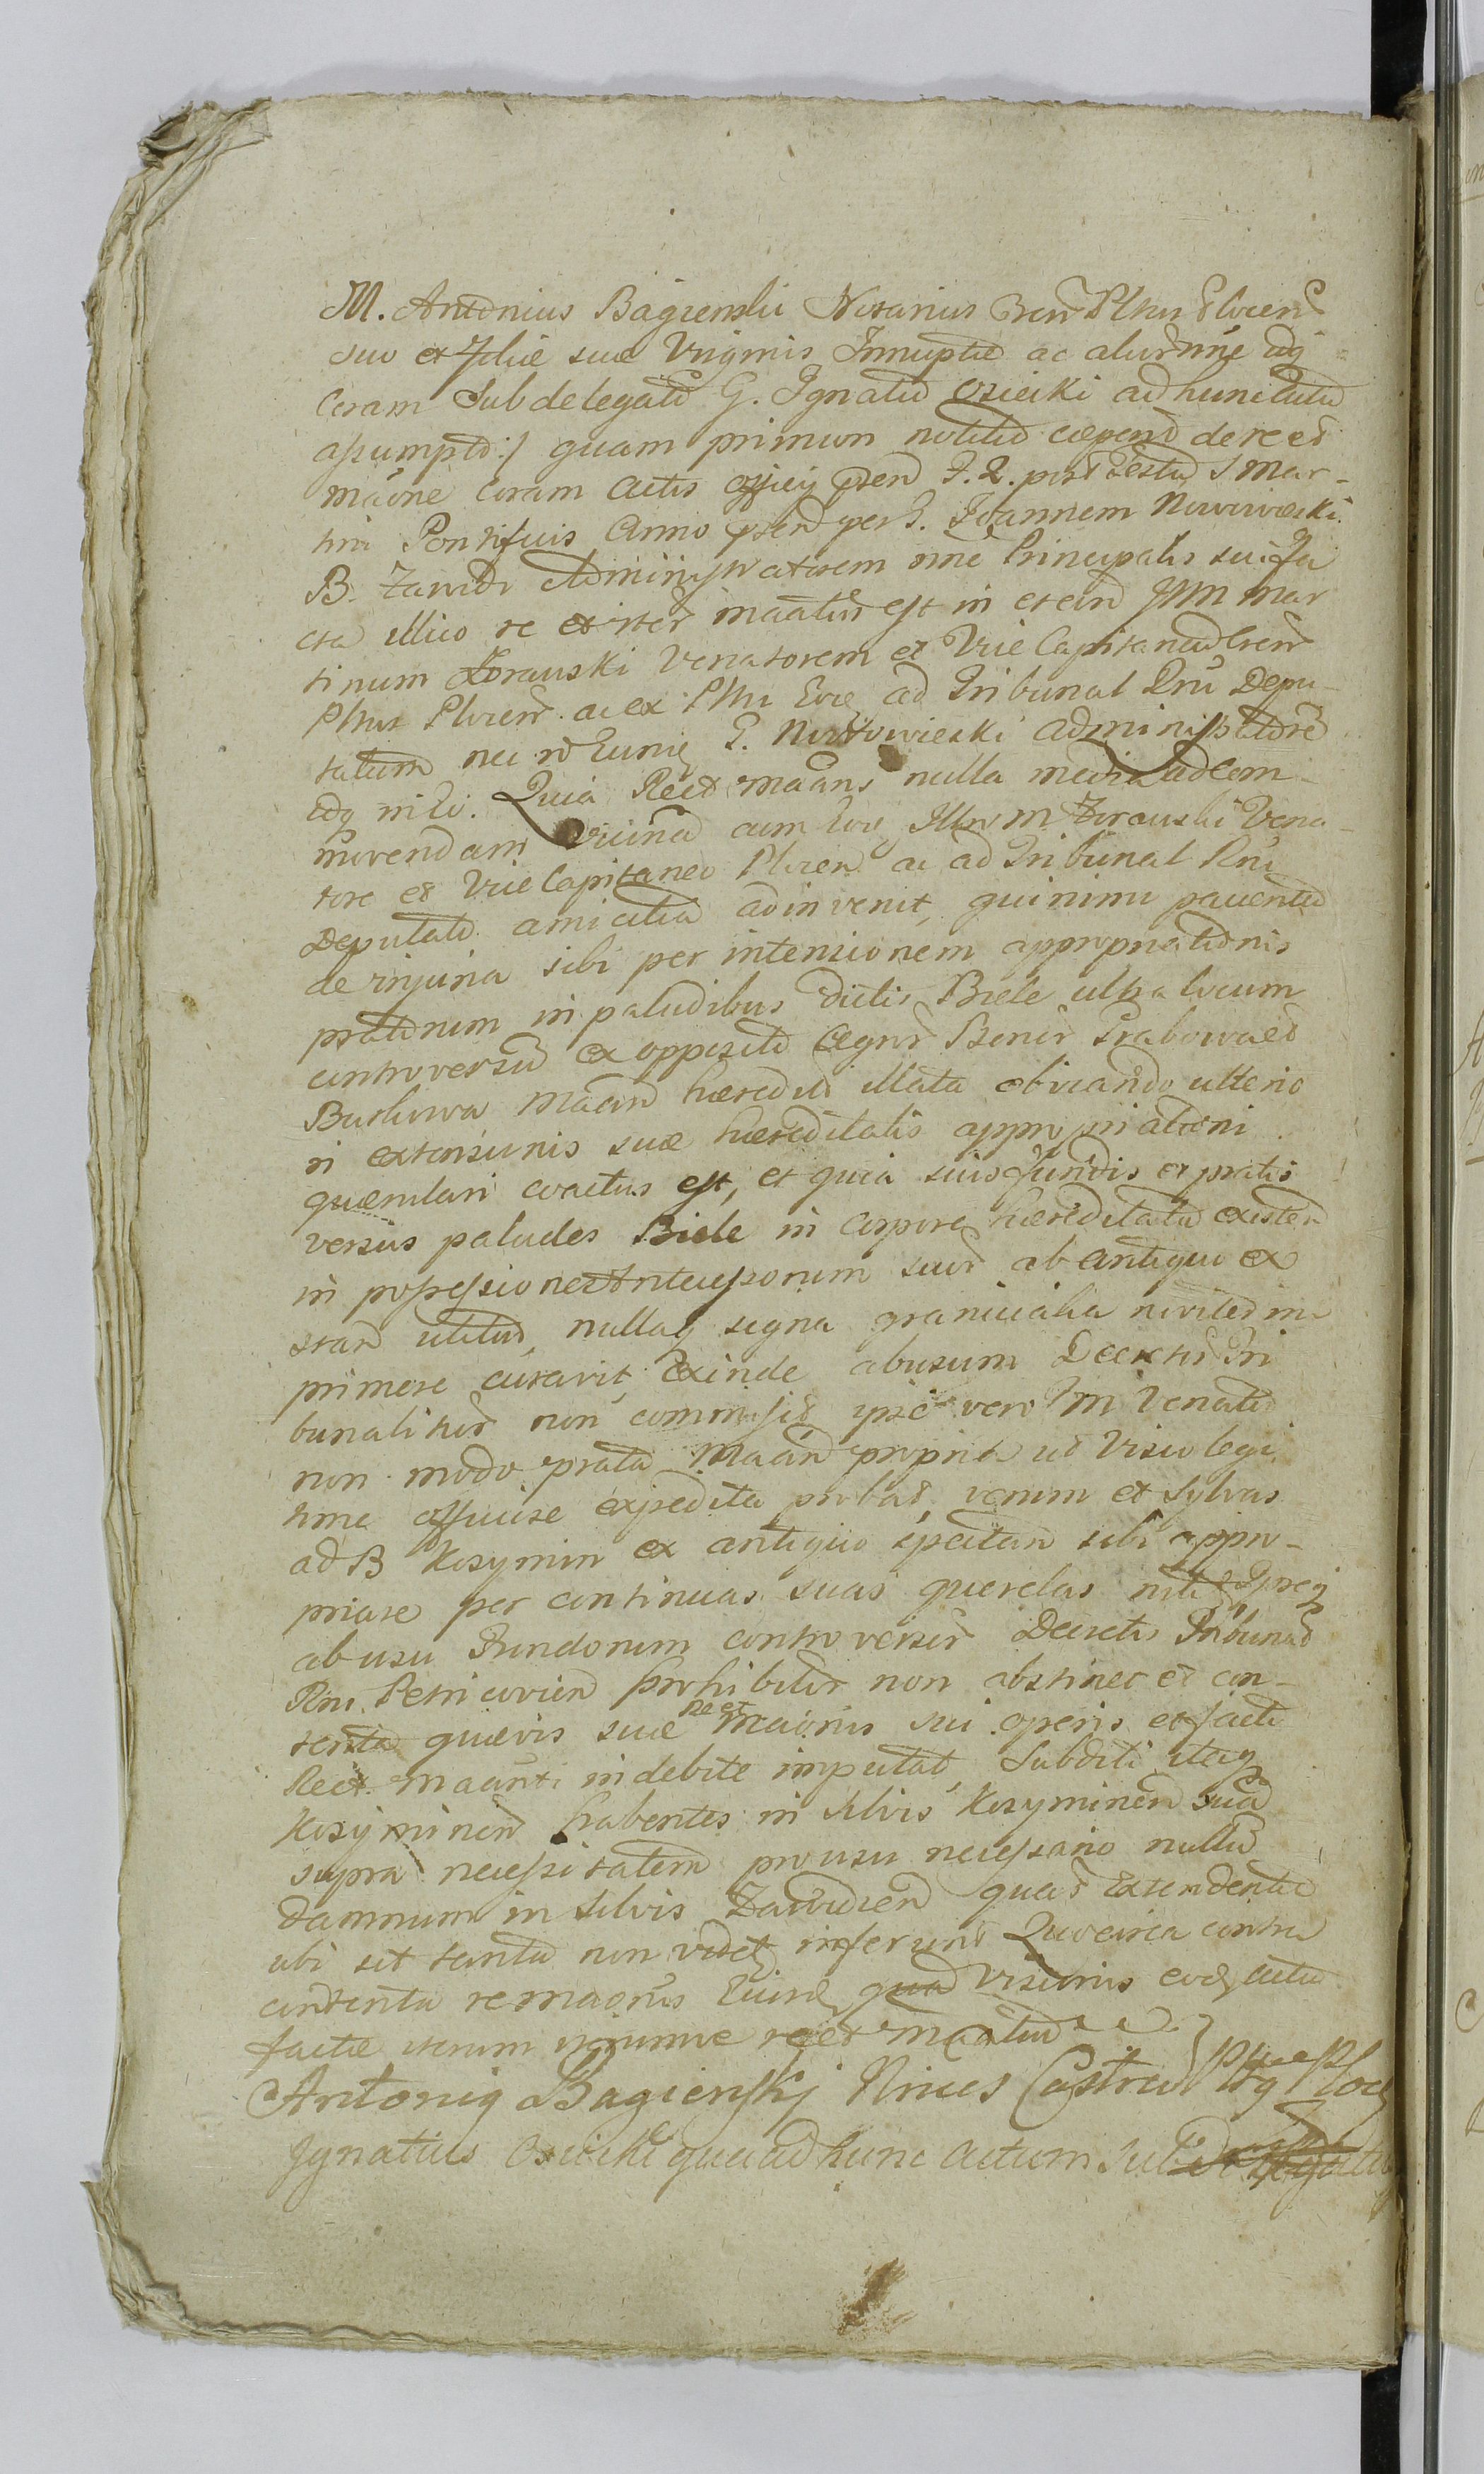 M. Antonius Bagienski Notarius Cren Pltus Plocen
suo et Filiæ suæ Virginis Innuptæ ac aliur nne idq
Coram Subdelegato G. Ignatio Osiecki ad hunc actum
assumpto:/ quam primum notitiã cœpend de reet
maõne coram Actis officij psen F. 2. post Festũ S Mar-
tini Pontificis Anno psen per G. Joannem Nowowieski
B. Zawidz Administratorem nne Principalis sui fa
cta illico re et iter maãtus est in et eund JMM Mar
tinum Zorauski Venatorem et Vice Capitaneũ Cren
Pltus Plocen. ac ex Pltu Eoꝗ ad Tribunal Rnũ Depu-
tatum nec nõ Eunꝗ G. Nowowieski administratorẽ
idq in Eo. Quia Reet maãns nulla media ad com-
movendam vicinã cum Eoꝗ Illro M Zorauski Vena-
tore et Vice Capitaneo Plocen ac ad Tribunal Rni
Deputato amicitiã adinvenit, quinimo
de injuria sibi per intensionem appropriationis
pratorum in paludibus dictis Biele ultra locum
controversũ ex opposito Bonor Grabowa et
Burkowa Maãnt hæredi illata obviando ulterio
ri extensionis suæ hæreditatis appropriationi
quærulari coactus est, et quia suis fundis et pratis
versus paludes Biele in corpore hæreditatũ existen
in possessione Antecessorum suor ab antiquo ex
stan utitur, nullaꝗ signa granicialia noviter im
primere curavit, Exinde abusum Decretor Tri
bunalitior non commisit, ipse vero M Venator
non modo prata Maãn propria ut Visio legi
time officiose expedita probat, verum et sylvas
ad B Kosymin ex antiquo spectan sibi appro-
priare per continuas suas querelas nititur, Ipseꝗ
ab usu Fundorum controversor Decretis Tribunal
Rni Petricovien prohibitor non abstinet et con-
tenta quævis suæ Reet Maõnis sui operis et facti
Reet Maãnti indebite imputat, Subditi itaꝗ
Kosyminen habentes in silvis Kosyminen suã
supra necessitatem pro usu necessario nullũ
damnum in silvis Zawidzen quas Extendentes
ubi sit tantũ non videt inferunt Quocirca contra
contenta remaonis Eiusꝗ quã Visionis eoꝗ actũ
factæ iterum iterumve reet maãtur
Antonig Bagienskj Nrius Castren Pltg Plocẽ
Ignatius Osiecki qua ad hunc actum Subdelegatus